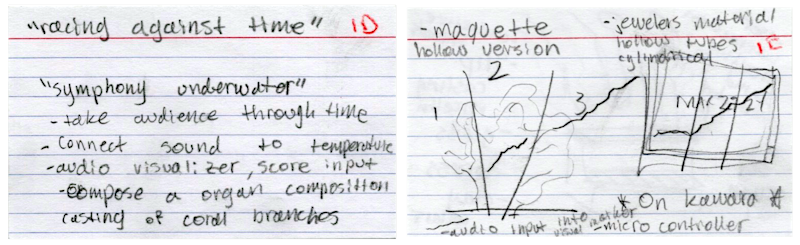 "racing against time" 1D
"symphony underwater"
- take audience through time
- connect sound to temperature
- audio visualizer, score input
- compose a organ composition
casting of coral branches
- maquette
hollow version
- jewelers material
hollow tubes 1E
cylindrical
2
1
3
MAR 27
* On Kawara *
- audio input into
visual
- micro controller